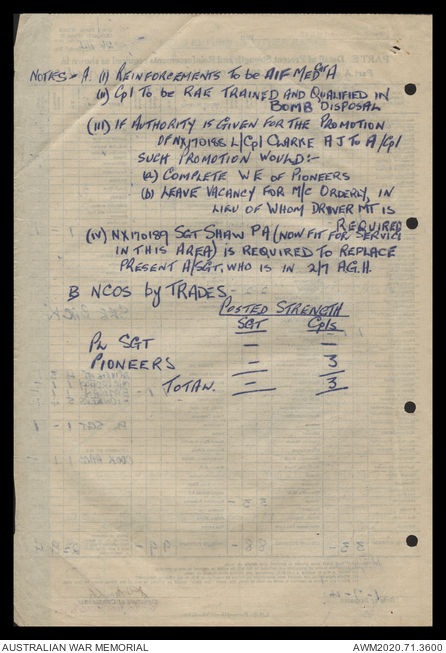 NOTES:- A. (i) REINFORCEMENTS TO be AIF MED Cat A
(ii) Cpl TO be RAE TRAINED AND QUALIFIED IN
BOMB DISPOSAL
(iii) IF AUTHORITY IS GIVEN FOR THE PROMOTION
OF NX170186 L/Cpl CLARKE A J TO A/Cpl
SUCH PROMOTION WOULD:-
(a) COMPLETE WE OF PIONEERS
(b) LEAVE VACANCY FOR M/C ORDERLY, IN
LIEU OF WHOM DRIVER MT IS
REQUIRED
(iv) NX170189 SGT SHAW PA (NOW FIT FOR SERVICE
IN THIS AREA) IS REQUIRED TO REPLACE
PRESENT A/SGT, WHO IS IN 2/7 A.G.H.
B NCOS by TRADES
POSTED STRENGTH
SGT Cpls
PL SGT - -
PIONEERS - 3
TOTAL. - 3
AUSTRALIAN WAR MEMORIAL AWM2020.71.3600